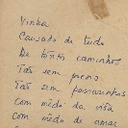 Vinha
Cansado de tudo
De tantos caminhos
Tão sem poesia
Tão sem passarinhos
Com medo da vida
Com medo de amar